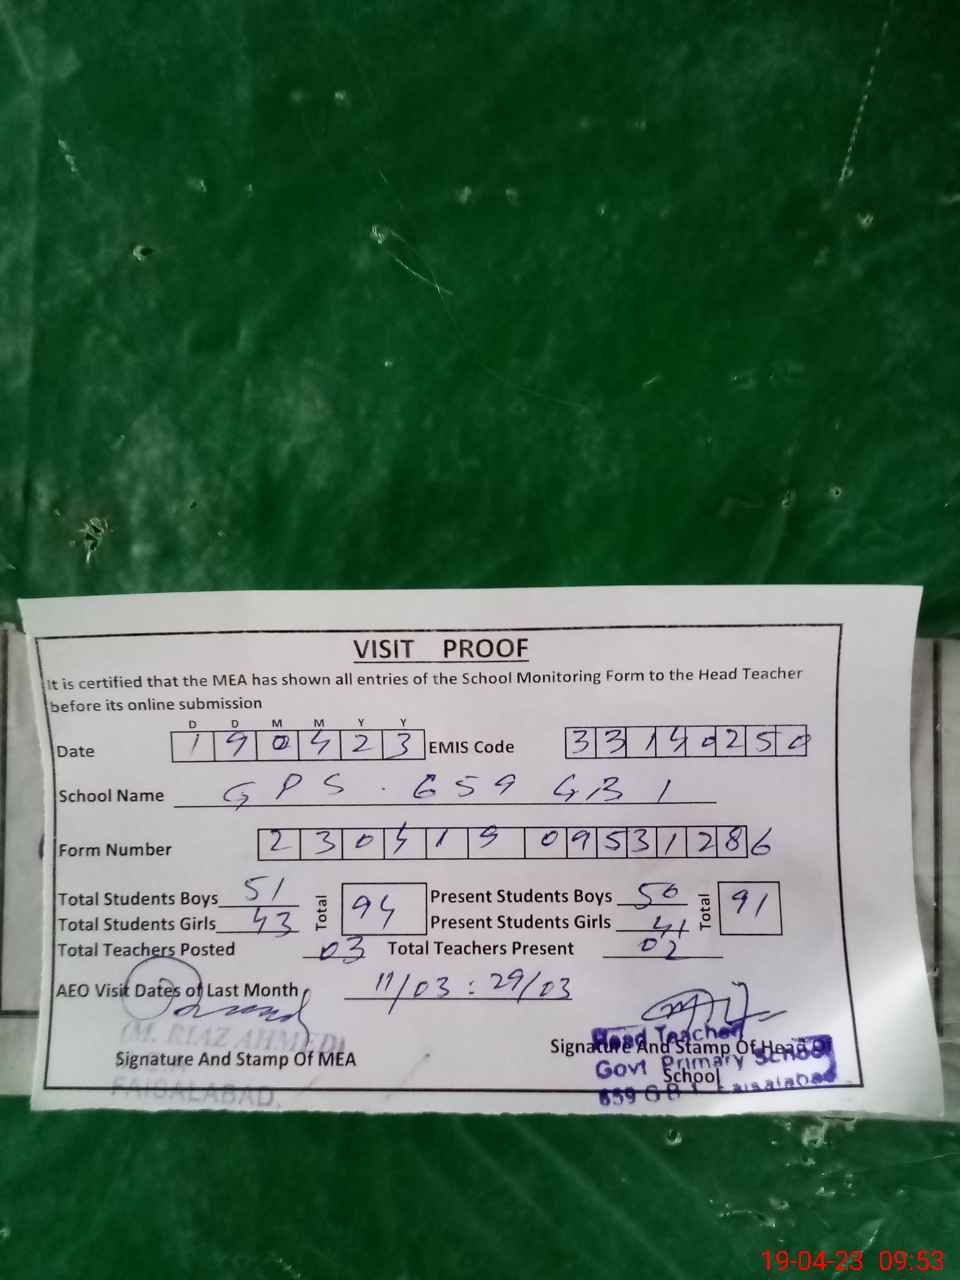 VISIT PROOF
It is certified that the MEA has shown all entries of the School Monitoring Form to the Head Teacher
before its online submission
D D M M Y Y
Date 190423 EMIS Code 33140250
School Name GPS. 659 GB 1
Form Number 230419 09531286
Total Students Boys 51 Total 94 Present Students Boys 50 Total 91
Total Students Girls 43 Present Students Girls 41
Total Teachers Posted 03 Total Teachers Present 02
AEO Visit Dates of Last Month 11/03 : 29/03
(M. RIAZ AHMED)
Signature And Stamp Of MEA
FAISALABAD.
Signature And Stamp Of Head Of
School
Head Teacher
Govt Primary School
659 G B 1 Faisalabad
19-04-23 09:53